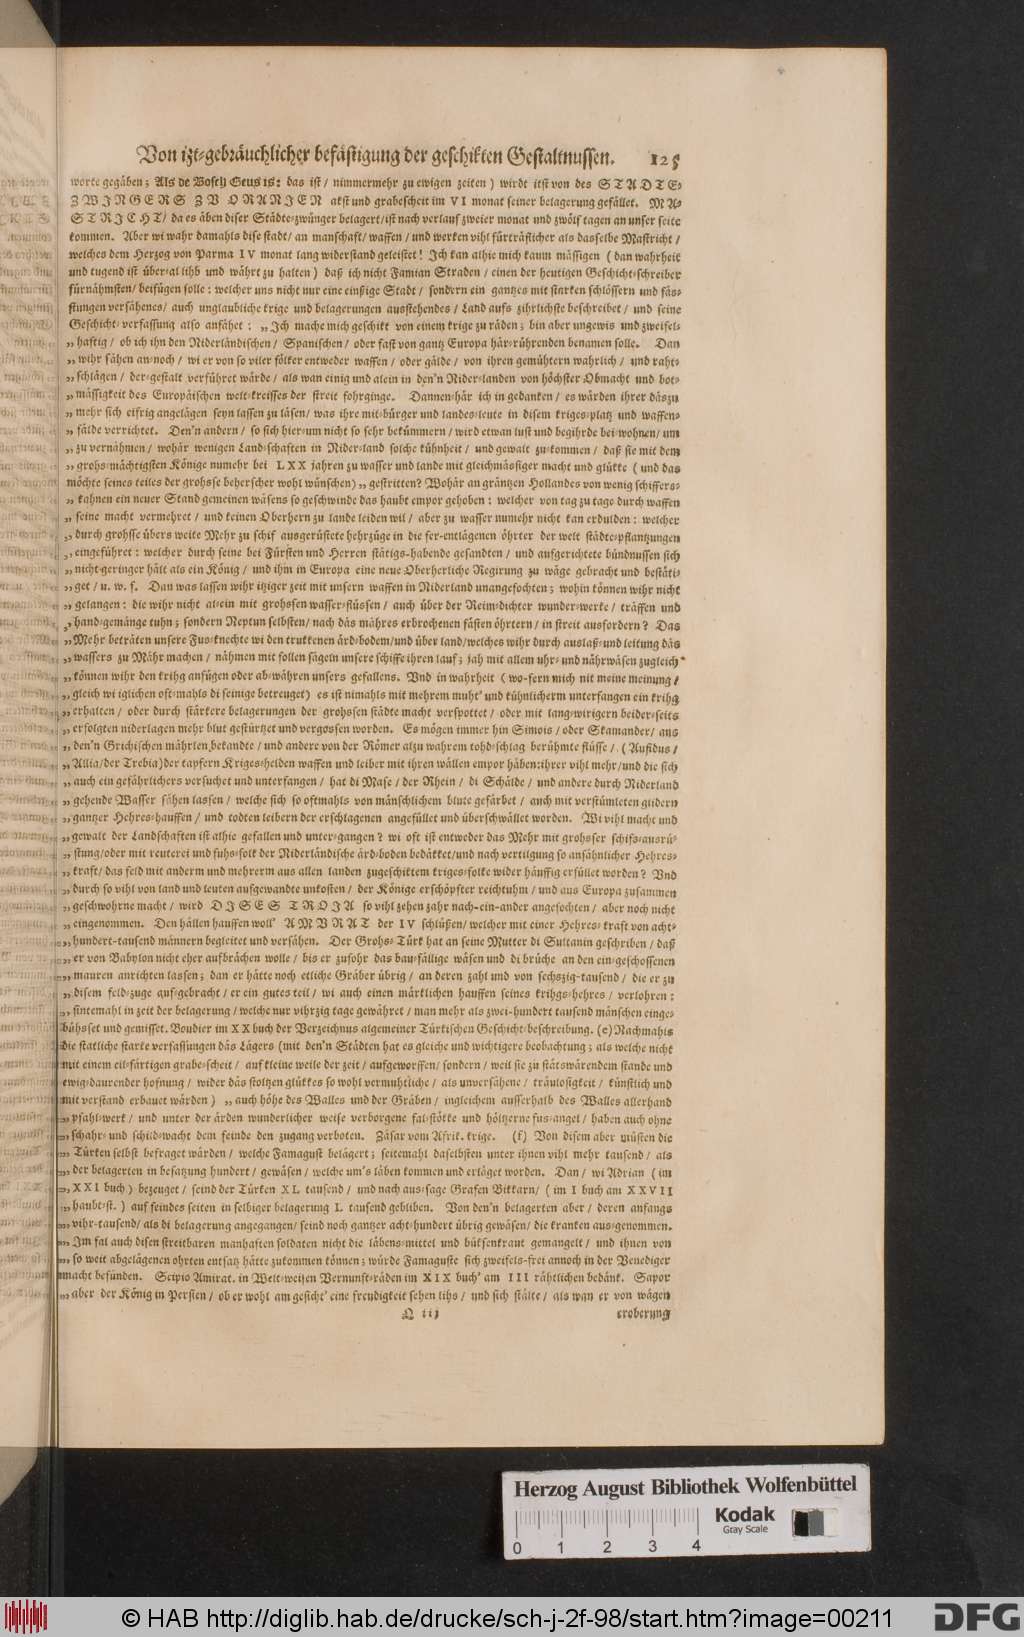 Von izt-gebräuchlicher befästigung der geschikten Gestaltnussen. 125
worte gegäben; Als de Bosch Geus is: das ist / nimmermehr zu ewigen zeiten) wirdt itst von des STÄDTE-
ZWINGERS ZV ORANJEN akst und grabescheit im VI monat seiner belagerung gefället. MA-
STRJCHT/ da es äben diser Städte-zwünger belagert/ ist nach verlauf zweier monat und zwölf tagen an unser seite
kommen. Aber wi wahr damahls dise stadt/ an manschaft/ waffen / und werken vihl fürträflicher als dasselbe Mastricht /
welches dem Herzog von Parma IV monat lang widerstand geleistet! Jch kan alhie mich kaum mässigen ( dan wahrheit
und tugend ist über-al lihb und währt zu halten ) daß ich nicht Famian Straden / einen der heutigen Geschicht-schreiber
fürnähmsten/ beifügen solle: welcher uns nicht nur eine einßige Stadt / sondern ein gantzes mit starken schlössern und fäs-
stungen versähenes/ auch unglaubliche krige und belagerungen ausstehendes / Land aufs zihrlichste beschreibet / und seine
Geschicht-verfassung also anfähet: „Jch mache mich geschikt von einem krige zu räden; bin aber ungewis und zweifel-
„ haftig / ob ich ihn den Niderländischen / Spanischen / oder fast von gantz Europa här-rührenden benamen solle. Dan
„ wihr sähen an-noch / wi er von so viler fölker entweder waffen / oder gälde / von ihren gemühtern wahrlich / und raht-
„ schlägen / der-gestalt verführet würde / als wan einig und alein in den'n Nider-landen von höchster Obmacht und bot-
„ mässigkeit des Europäischen welt-kreisses der streit fohrginge. Dannen-här ich in gedanken / es wärden ihrer däszu
„ mehr sich eifrig angelägen seyn lassen zu läsen/ was ihre mit-bürger und landes-leute in disem kriges-platz und waffen-
„ fälde verrichtet. Den'n andern / so sich hier-um nicht so sehr bekümmern / wird etwan lust und begihrde bei-wohnen/ um
„ zu vernähmen / wohär wenigen Land-schaften in Nider-land solche kühnheit / und gewalt zu-kommen / daß sie mit dem
„ grohs-mächtigsten Könige numehr bei LXX jahren zu wasser und lande mit gleichmässiger macht und glükke ( und das
möchte seines teiles der grohsse beherscher wohl wünschen) „ gestritten? Wohär an gräntzen Hollandes von wenig schiffers-
„ kahnen ein neuer Stand gemeinen wäsens so geschwinde das haubt empor gehoben: welcher von tag zu tage durch waffen
„ seine macht vermehret / und keinen Oberhern zu lande leiden wil / aber zu wasser numehr nicht kan erdulden: welcher
„ durch grohsse übers weite Mehr zu schif ausgerüstete hehrzüge in die fer-entlägenen öhrter der welt städte-pflantzungen
„ eingeführet: welcher durch seine bei Fürsten und Herren stätigs-habende gesandten / und aufgerichtete bündnussen sich
„ nicht geringer hält als ein König / und ihm in Europa eine neue Oberherliche Regirung zu wäge gebracht und bestäti-
„ get / u. w. s. Dan was lassen wihr itziger zeit mit unsern waffen in Niderland unangefochten; wohin können wihr nicht
„ gelangen: die wihr nicht al-ein mit grohssen wasser-flüssen / auch über der Reim-dichter wunder-werke / träffen und
„ hand-gemänge tuhn; sondern Neptun selbsten/ nach däs mähres erbrochenen fästen öhrtern/ in streit ausfordern? Das
„ Mehr beträten unsere Fus-knechte wi den trukkenen ärd-bodem/und über land/welches wihr durch auslaß- und leitung däs
„ wassers zu Mähr machen / nähmen mit follen sägeln unsere schiffe ihren lauf; jah mit allem uhr- und nährwäsen zugleich
„ können wihr den krihg anfügen oder ab-währen unsers gefallens. Vnd in wahrheit ( wo-fern mich nit meine meinung /
„ gleich wi iglichen oft-mahls di seinige betreuget) es ist nimahls mit mehrem muht' und kühnlicherm unterfangen ein krihg
„ erhalten / oder durch stärkere belagerungen der grohssen städte macht verspottet / oder mit lang-wirigern beider-seits
„ erfolgten niderlagen mehr blut gestürtzet und vergossen worden. Es mögen immer hin Simois / oder Skamander / aus
„ den'n Grichischen mährlen bekandte / und andere von der Römer alzu wahrem tohd-schlag berühmte flüsse / ( Aufidus /
„ Allia/der Trebia)der tapfern Kriges-helden waffen und leiber mit ihren wällen empor häben:ihrer vihl mehr/und die sich
„ auch ein gefährlichers versuchet und unterfangen / hat di Mase / der Rhein / di Schälde / und andere durch Niderland
„ gehende Wasser sähen lassen / welche sich so oftmahls von mänschlichem blute gefärbet / auch mit verstümleten glidern
„ gantzer Hehres-hauffen / und todten leibern der erschlagenen angefüllet und überschwället worden. Wi vihl macht und
„ gewalt der Landschaften ist alhie gefallen und unter-gangen? wi oft ist entweder das Mehr mit grohsser schifs-ausrü-
„ stung/oder mit reuterei und fuhs-folk der Niderländische ärd-boden bedäkket/und nach vertilgung so ansähnlicher Hehres-
„ kraft/ das feld mit anderm und mehrerm aus allen landen zugeschiktem kriges-folke wider häuffig erfüllet worden? Vnd
„ durch so vihl von land und leuten aufgewandte unkosten / der Könige erschöpfter reichtuhm / und aus Europa zusammen
„ geschwohrne macht / wird DJSES TROJA so vihl zehen zahr nach-ein-ander angefochten / aber noch nicht
„ eingenommen. Den hällen hauffen woll' AMVRAT der IV schlüßen/ welcher mit einer Hehres-kraft von acht-
„ hundert-tausend männern begleitet und versähen. Der Grohs-Türk hat an seine Mutter di Sultanin geschriben / daß
„ er von Babylon nicht eher aufbrächen wolle / bis er zufohr das bau-fällige wäsen und di brüche an den ein-geschossenen
„ mauren anrichten lassen; dan er hätte noch etliche Gräber übrig / an deren zahl und von sechszig-tausend / die er zu
„ disem feld-zuge auf-gebracht / er ein gutes teil / wi auch einen märklichen hauffen seines krihgs-hehres / verlohren:
„ sintemahl in zeit der belagerung / welche nur vihrzig tage gewähret / man mehr als zwei-hundert tausend mänschen einge-
bühsset und gemisset. Boudier im XX buch der Verzeichnus algemeiner Türkischen Geschicht-beschreibung. (e) Nachmahls
die statliche starke verfassungen däs Lägers (mit den'n Städten hat es gleiche und wichtigere beobachtung; als welche nicht
mit einem eil-färtigen grabe-scheit / auf kleine weile der zeit / aufgeworffen / sondern / weil sie zu stätswärendem stande und
ewig-daurender hofnung / wider däs stoltzen glükkes so wohl vermuhtliche / als unversähene / träulosigkeit / künstlich und
mit verstand erbauet wärden ) „ auch höhe des Walles und der Gräben / ingleichem ausserhalb des Walles allerhand
„ pfahl-werk / und unter der ärden wunderlicher weise verborgene fal-stökke und höltzerne fus-angel / haben auch ohne
„ schahr- und schild-wacht dem feinde den zugang verboten. Zäsar vom Afrik. krige. (f) Von disem aber müsten die
„ Türken selbst befraget wärden / welche Famagust belägert; seitemahl daselbsten unter ihnen vihl mehr tausend / als
„ der belagerten in besatzung hundert / gewäsen / welche um's läben kommen und erläget worden. Dan / wi Adrian ( im
„ XXI buch ) bezeuget / seind der Türken XL tausend / und nach aus-sage Grafen Bikkarn/ ( im I buch am XXVII
„ haubt-st. ) auf feindes seiten in selbiger belagerung L tausend gebliben. Von den'n belagerten aber / deren anfangs
„ vihr-tausend/ als di belagerung angegangen / seind noch gantzer acht-hundert übrig gewäsen/ die kranken aus-genommen.
„ Jm fal auch disen streitbaren manhaften soldaten nicht die läbens-mittel und büksenkraut gemangelt / und ihnen von
„ so weit abgelägenen ohrten entsatz hätte zukommen können; würde Famaguste sich zweifels-frei annoch in der Venediger
macht befünden. Scipio Amirat. in Welt-weisen Vernunft-räden im XIX buch' am III rähtlichen bedänk. Sapor
„ aber der König in Persien / ob er wohl am gesicht' eine freudigkeit sehen lihs / und sich stälte / als wan er von wägen
Q iij eroberung
Herzog August Bibliothek Wolfenbüttel
Kodak
Gray Scale
0 1 2 3 4
© HAB http://diglib.hab.de/drucke/sch-j-2f-98/start.htm?image=00211
DFG